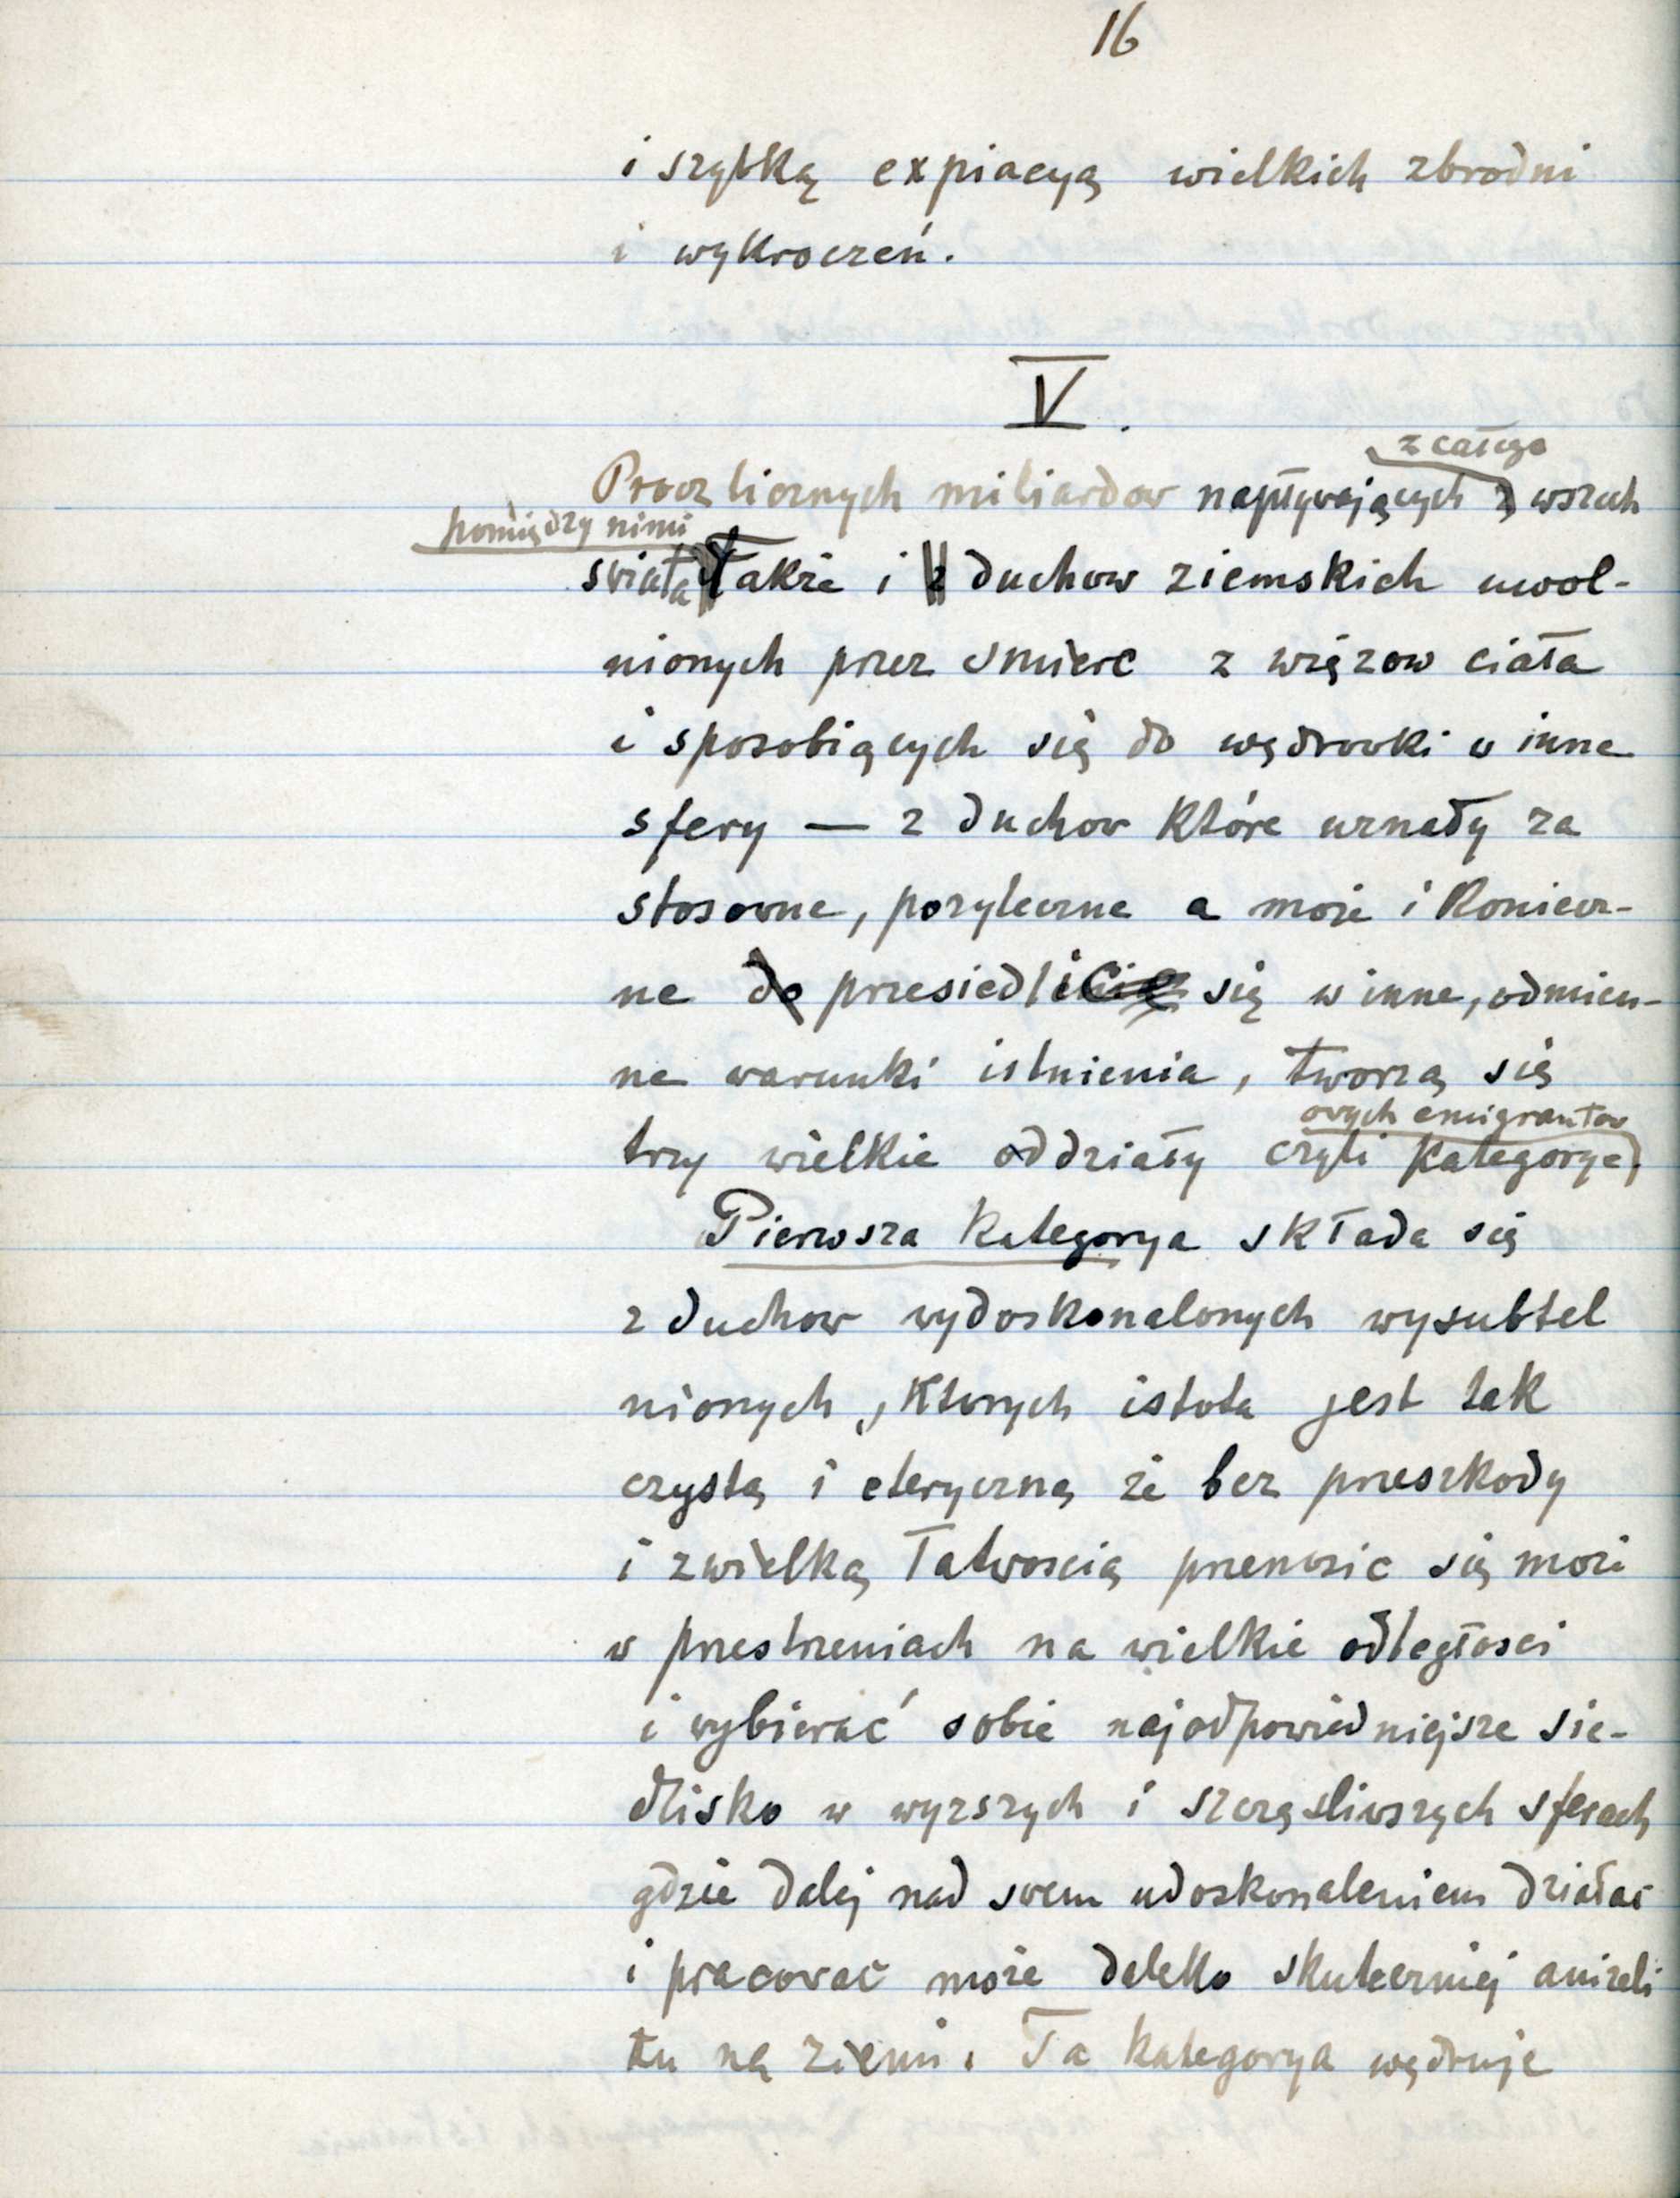 16
i szybką expiacyą wielkich zbrodni
i wykroczeń.
V.
z całego
Procz licznych miliardow napływających z wszech
pomiędzy nimi
swiata także i z duchow ziemskich uwol-
nionych przez smierc z więzow ciała
i sposobiących się do wędrowki w inne
sfery — z duchow które uznały za
stosowne, pozyteczne a może i koniecz-
ne do przesiedlić się w inne, odmien-
ne warunki istnienia, tworzą się
owych emigrantow
trzy wielkie oddziały czyli kategorye.
Pierwsza kategorya składa się
z duchow wydoskonalonych wysubtel
nionych, ktorych istota jest tak
czystą i eteryczną że bez przeszkody
i z wielką łatwoscią przenosic się może
w przestrzeniach na wielkie odległosci
i wybierać sobie najodpowiedniejsze sie-
dlisko w wyzszych i szczęsliwszych sferach
gdzie dalej nad swem udoskonaleniem działac
i pracowac może daleko skuteczniej anizeli
tu na ziemi. Ta kategorya wędruje